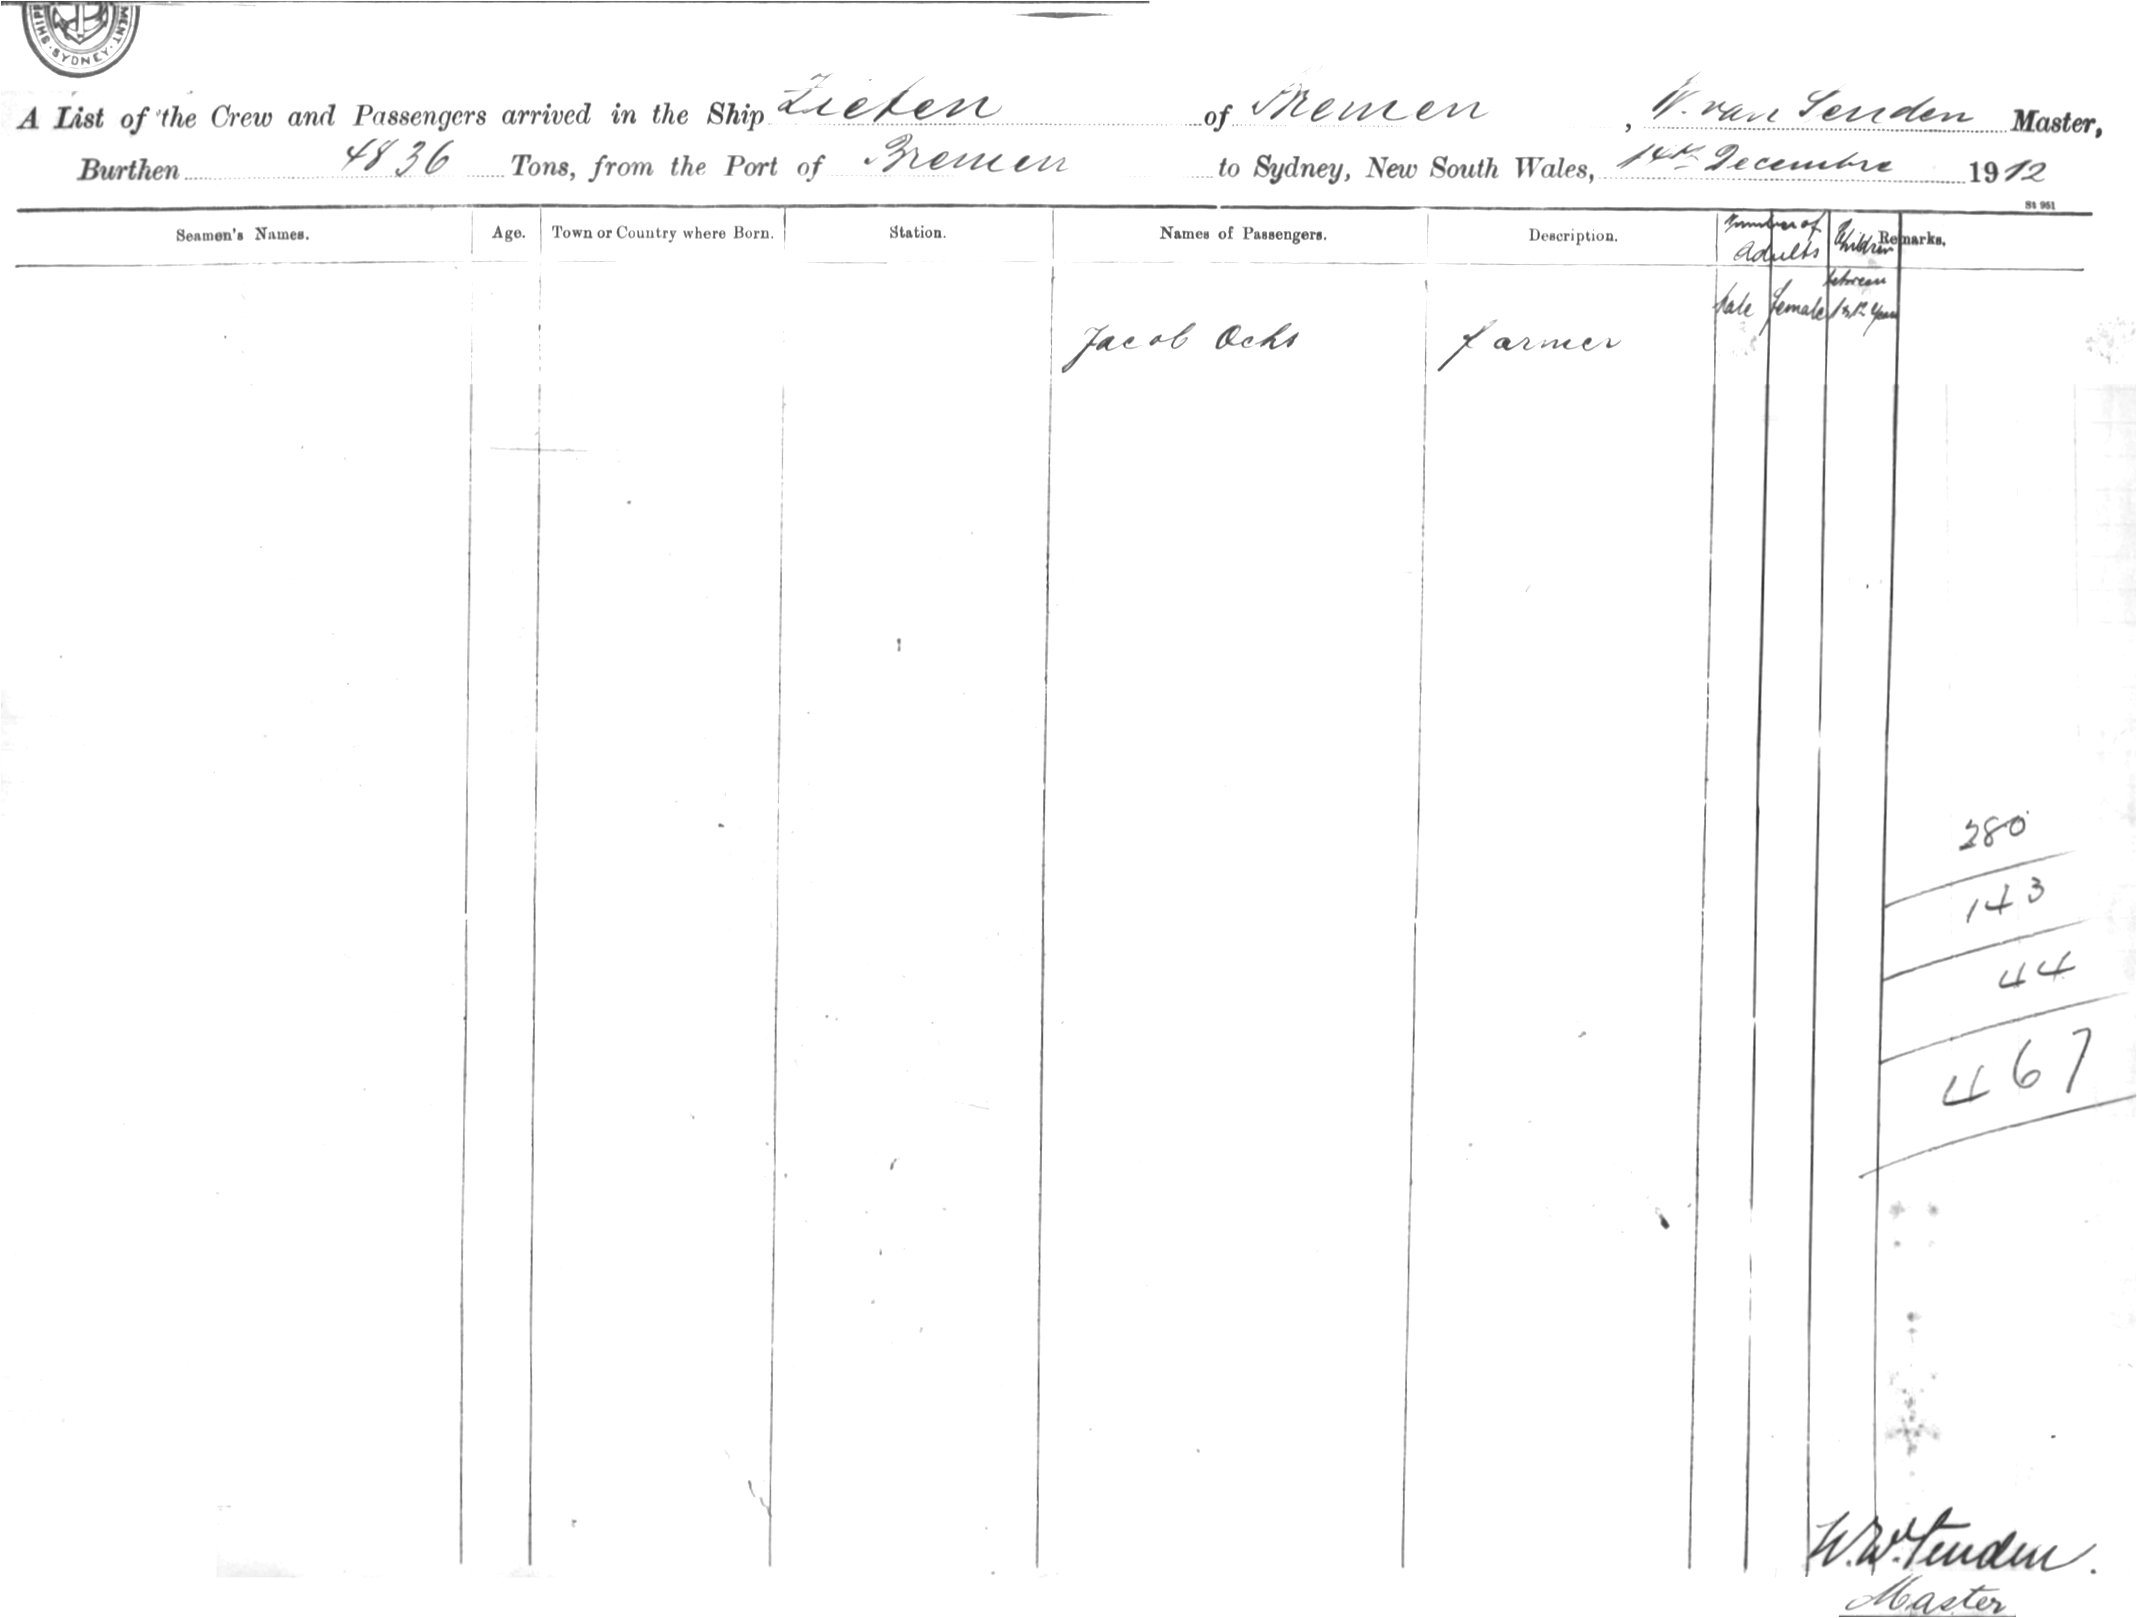 SHIPP MENT · SYDNEY ·
A List of the Crew and Passengers arrived in the Ship Zieten of Bremen, W. van Senden Master,
Burthen 4836 Tons, from the Port of Bremen to Sydney, New South Wales, 14th Decembre 1912
St 951
Seamen's Names. Age. Town or Country where Born. Station. Names of Passengers. Description. Number of Adults Children Remarks.
between
Male Female 1 & 12 Years
Jacob Ochs farmer
280
143
44
467
Senden.
Master